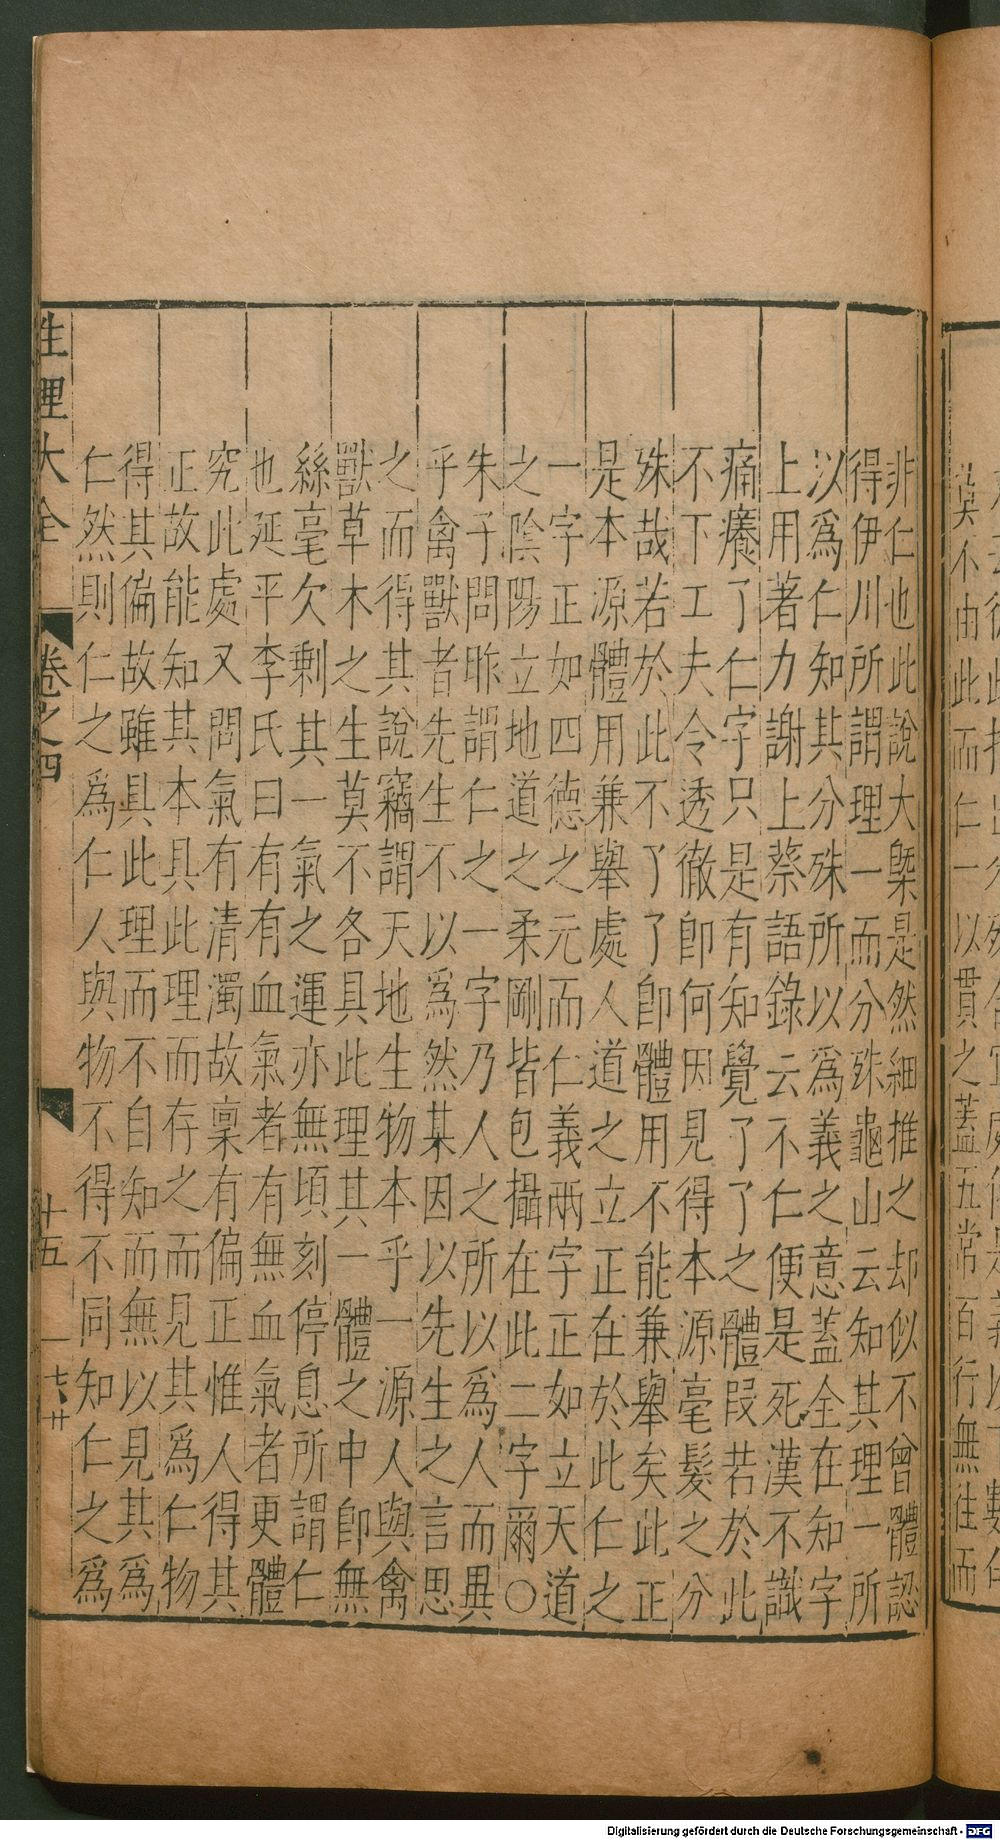 非仁也此說大槩是然細推之却似不曾體認
得伊川所謂理一而分殊龜山云知其理一所
以爲仁知其分殊所以爲義之意蓋全在知字
上用著力謝上蔡語錄云不仁便是死漢不識
痛癢了仁字只是有知覺了了之體段若於此
不下工夫令透徹卽何因見得本源毫髮之分
殊哉若於此不了了卽體用不能兼舉矣此正
是本源體用兼舉處人道之立正在於此仁之
一字正如四德之元而仁義兩字正如立天道
之陰陽立地道之柔剛皆包攝在此二字爾○
朱子問昨謂仁之一字乃人之所以爲人而異
乎禽獸者先生不以爲然某因以先生之言思
之而得其說竊謂天地生物本乎一源人與禽
獸草木之生莫不各具此理其一體之中卽無
絲毫欠剩其一氣之運亦無頃刻停息所謂仁
也延平李氏曰有有血氣者有無血氣者更體
究此處又問氣有清濁故稟有偏正惟人得其
正故能知其本具此理而存之而見其爲仁物
得其偏故雖具此理而不自知而無以見其爲
仁然則仁之爲仁人與物不得不同知仁之爲
性理大全 卷之四 十五 一七廿
莫不由此而仁一以貫之蓋五常百行無往而
Digitalisierung gefördert durch die Deutsche Forschungsgemeinschaft - DFG